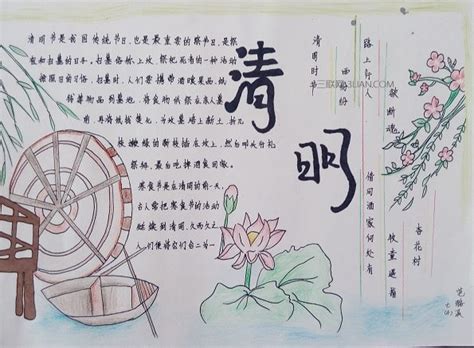 清明节是我国传统节日，也是最重要的祭节日，是祭
祖和扫墓的日子。扫墓俗称上坟，祭祀死者的一种活动
按照旧的习俗，扫墓时，人们要携带酒食果品、纸
钱等物品到墓地，将食物供祭在亲人墓
前，再将纸钱焚化，为坟墓培上新土，折几
枝嫩绿的新枝插在坟上，然后叩头行礼
祭拜，最后吃掉酒食回家。
寒食节是在清明的前一天，
古人常把寒食节的活动
延续到清明，久而久之
人们便将它们合二为一
清明
清明时节
雨纷纷
路上行人
欲断魂
借问酒家何处有
牧童遥指
杏花村
三联网3LIAN.COM